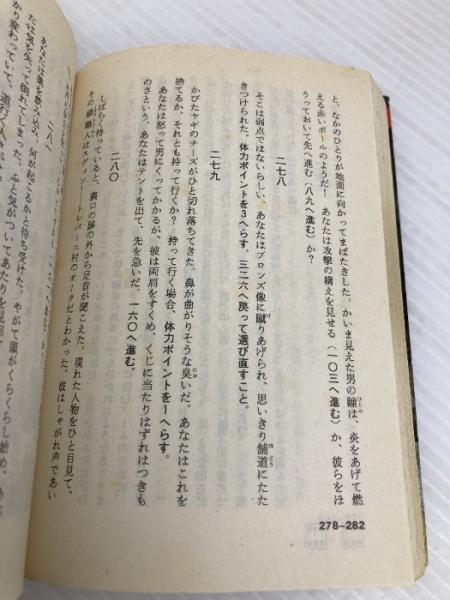 と、なかのひとりが地面に向かってまばたきした。かいま見えた男の瞳は、炎をあげて燃
える赤いボールのようだ！　あなたは攻撃の構えを見せる（一〇三へ進む）か、彼らをほ
うっておいて先へ進む（八九へ進む）か？
二七八
そこは弱点ではないらしい。あなたはブロンズ像に蹴りあげられ、思いきり舗道にたた
きつけられた。体力ポイントを3へらす。三二六へ戻って選び直すこと。
二七九
かびたヤギのチーズがひと切れ落ちてきた。鼻が曲がりそうな臭いだ。あなたはこれを
捨てるか、それとも持って行くか？　持って行く場合、体力ポイントを1へらす。
あなたは怒って男にくってかかるが、彼は両肩をすくめ、くじに当たりはずれはつきも
のさという。あなたはテントを出て、先を急いだ。一六〇へ進む。
二八〇
しばらく待っていると、裏口の扉の外から足音が聞こえた。現れた人物をひと目見て、
村のオークだとわかった。彼はしゃがれ声であい
278-282
あなたは薬を飲み込み、何が起こるかと待ち受けた。やがて頭がくらくらし始め、
たは気を失って倒れてしまった。ふと気がついてあたりを見
かり変わっていて、道行く人々が